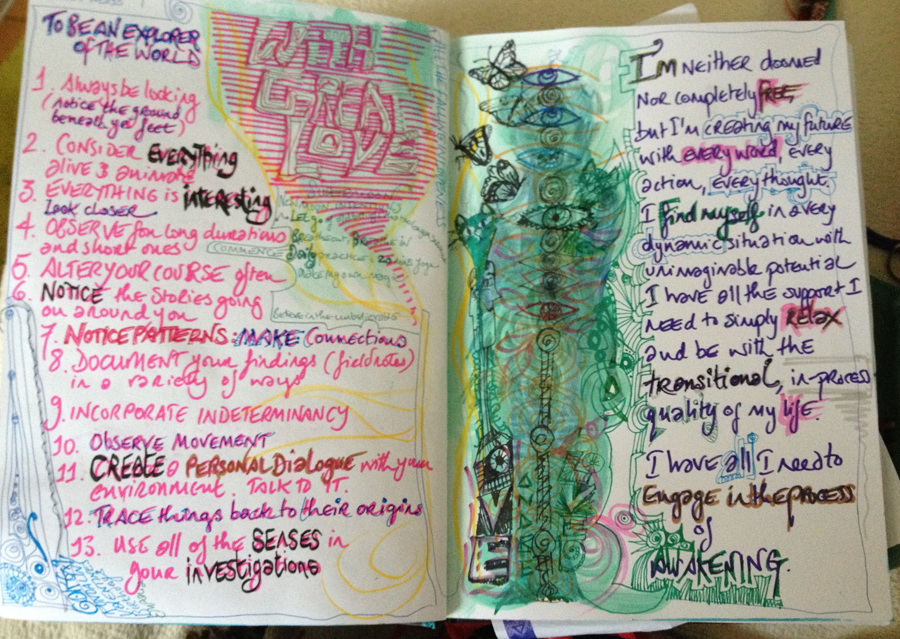 TO BE AN EXPLORER
OF THE WORLD
1. Always be looking
(notice the ground
beneath yr feet)
2. CONSIDER EVERYTHING
alive & animate
3. EVERYTHING IS interesting
Look closer
4. OBSERVE for long durations
and short ones
5. ALTER YOUR COURSE often
6. NOTICE the stories going
on around you
7. NOTICE PATTERNS: MAKE Connections
8. DOCUMENT your findings (fieldnotes)
in a variety of ways
9. INCORPORATE INDETERMINANCY
10. OBSERVE MOVEMENT
11. CREATE a PERSONAL DIALOGUE with your
environment. TALK TO IT.
12. TRACE things back to their origins
13. USE all of the SENSES in
your investigations
WITH
GREAT
LOVE
COMMENCE
Daily
I'm neither doomed
nor completely FREE,
but I'm creating my future
with every word, every
action, every thought.
I find myself in a very
dynamic situation with
unimaginable potential
I have all the support I
need to simply relax
and be with the
transitional, in-process
quality of my life.
I have all I need to
Engage in the process
of
AWAKENING.